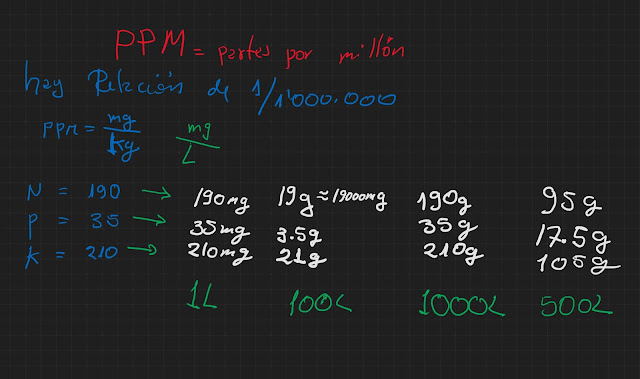 PPM = partes por millón
hay Relación de 1/1'000.000
PPM = mg/kg mg/L
N = 190 → 190mg 19g ≈ 19000mg 190g 95g
P = 35 → 35mg 3.5g 35g 17.5g
K = 210 → 210mg 21g 210g 105g
1L 100L 1000L 500L